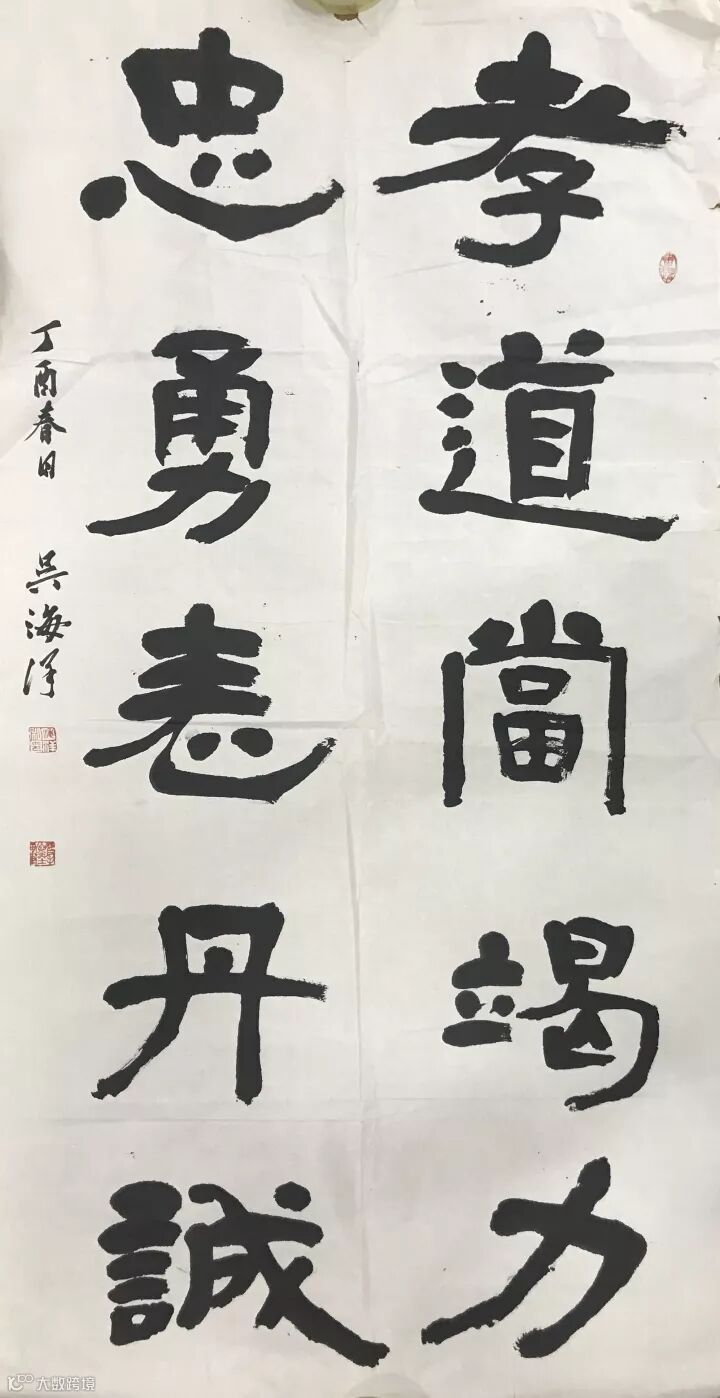 孝道當竭力
忠勇表丹誠
丁酉春日 吳海洋
大数跨境